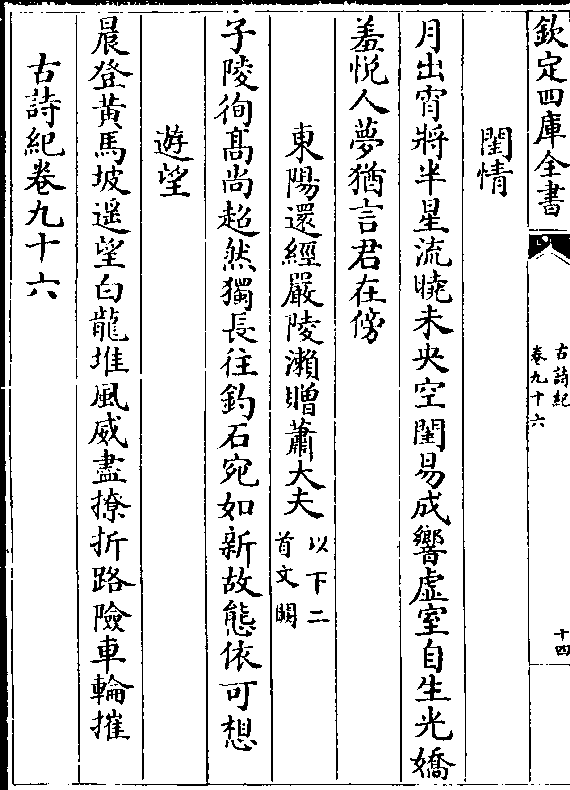 欽定四庫全書
古詩紀
卷九十六
十四
閨情
月出宵將半星流曉未央空閨易成響虚室自生光嬌
羞悅人夢猶言君在傍
東陽還經嚴陵瀨贈蕭大夫以下二
首文闕
子陵徇髙尚超然獨長往釣石宛如新故態依可想
遊望
晨登黃馬坡遥望白龍堆風威盡撩折路險車輪摧
古詩紀卷九十六